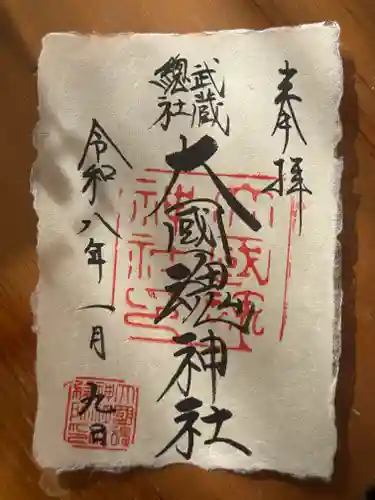 奉拝
武蔵
總社
大國魂神社
令和八年一月
九日